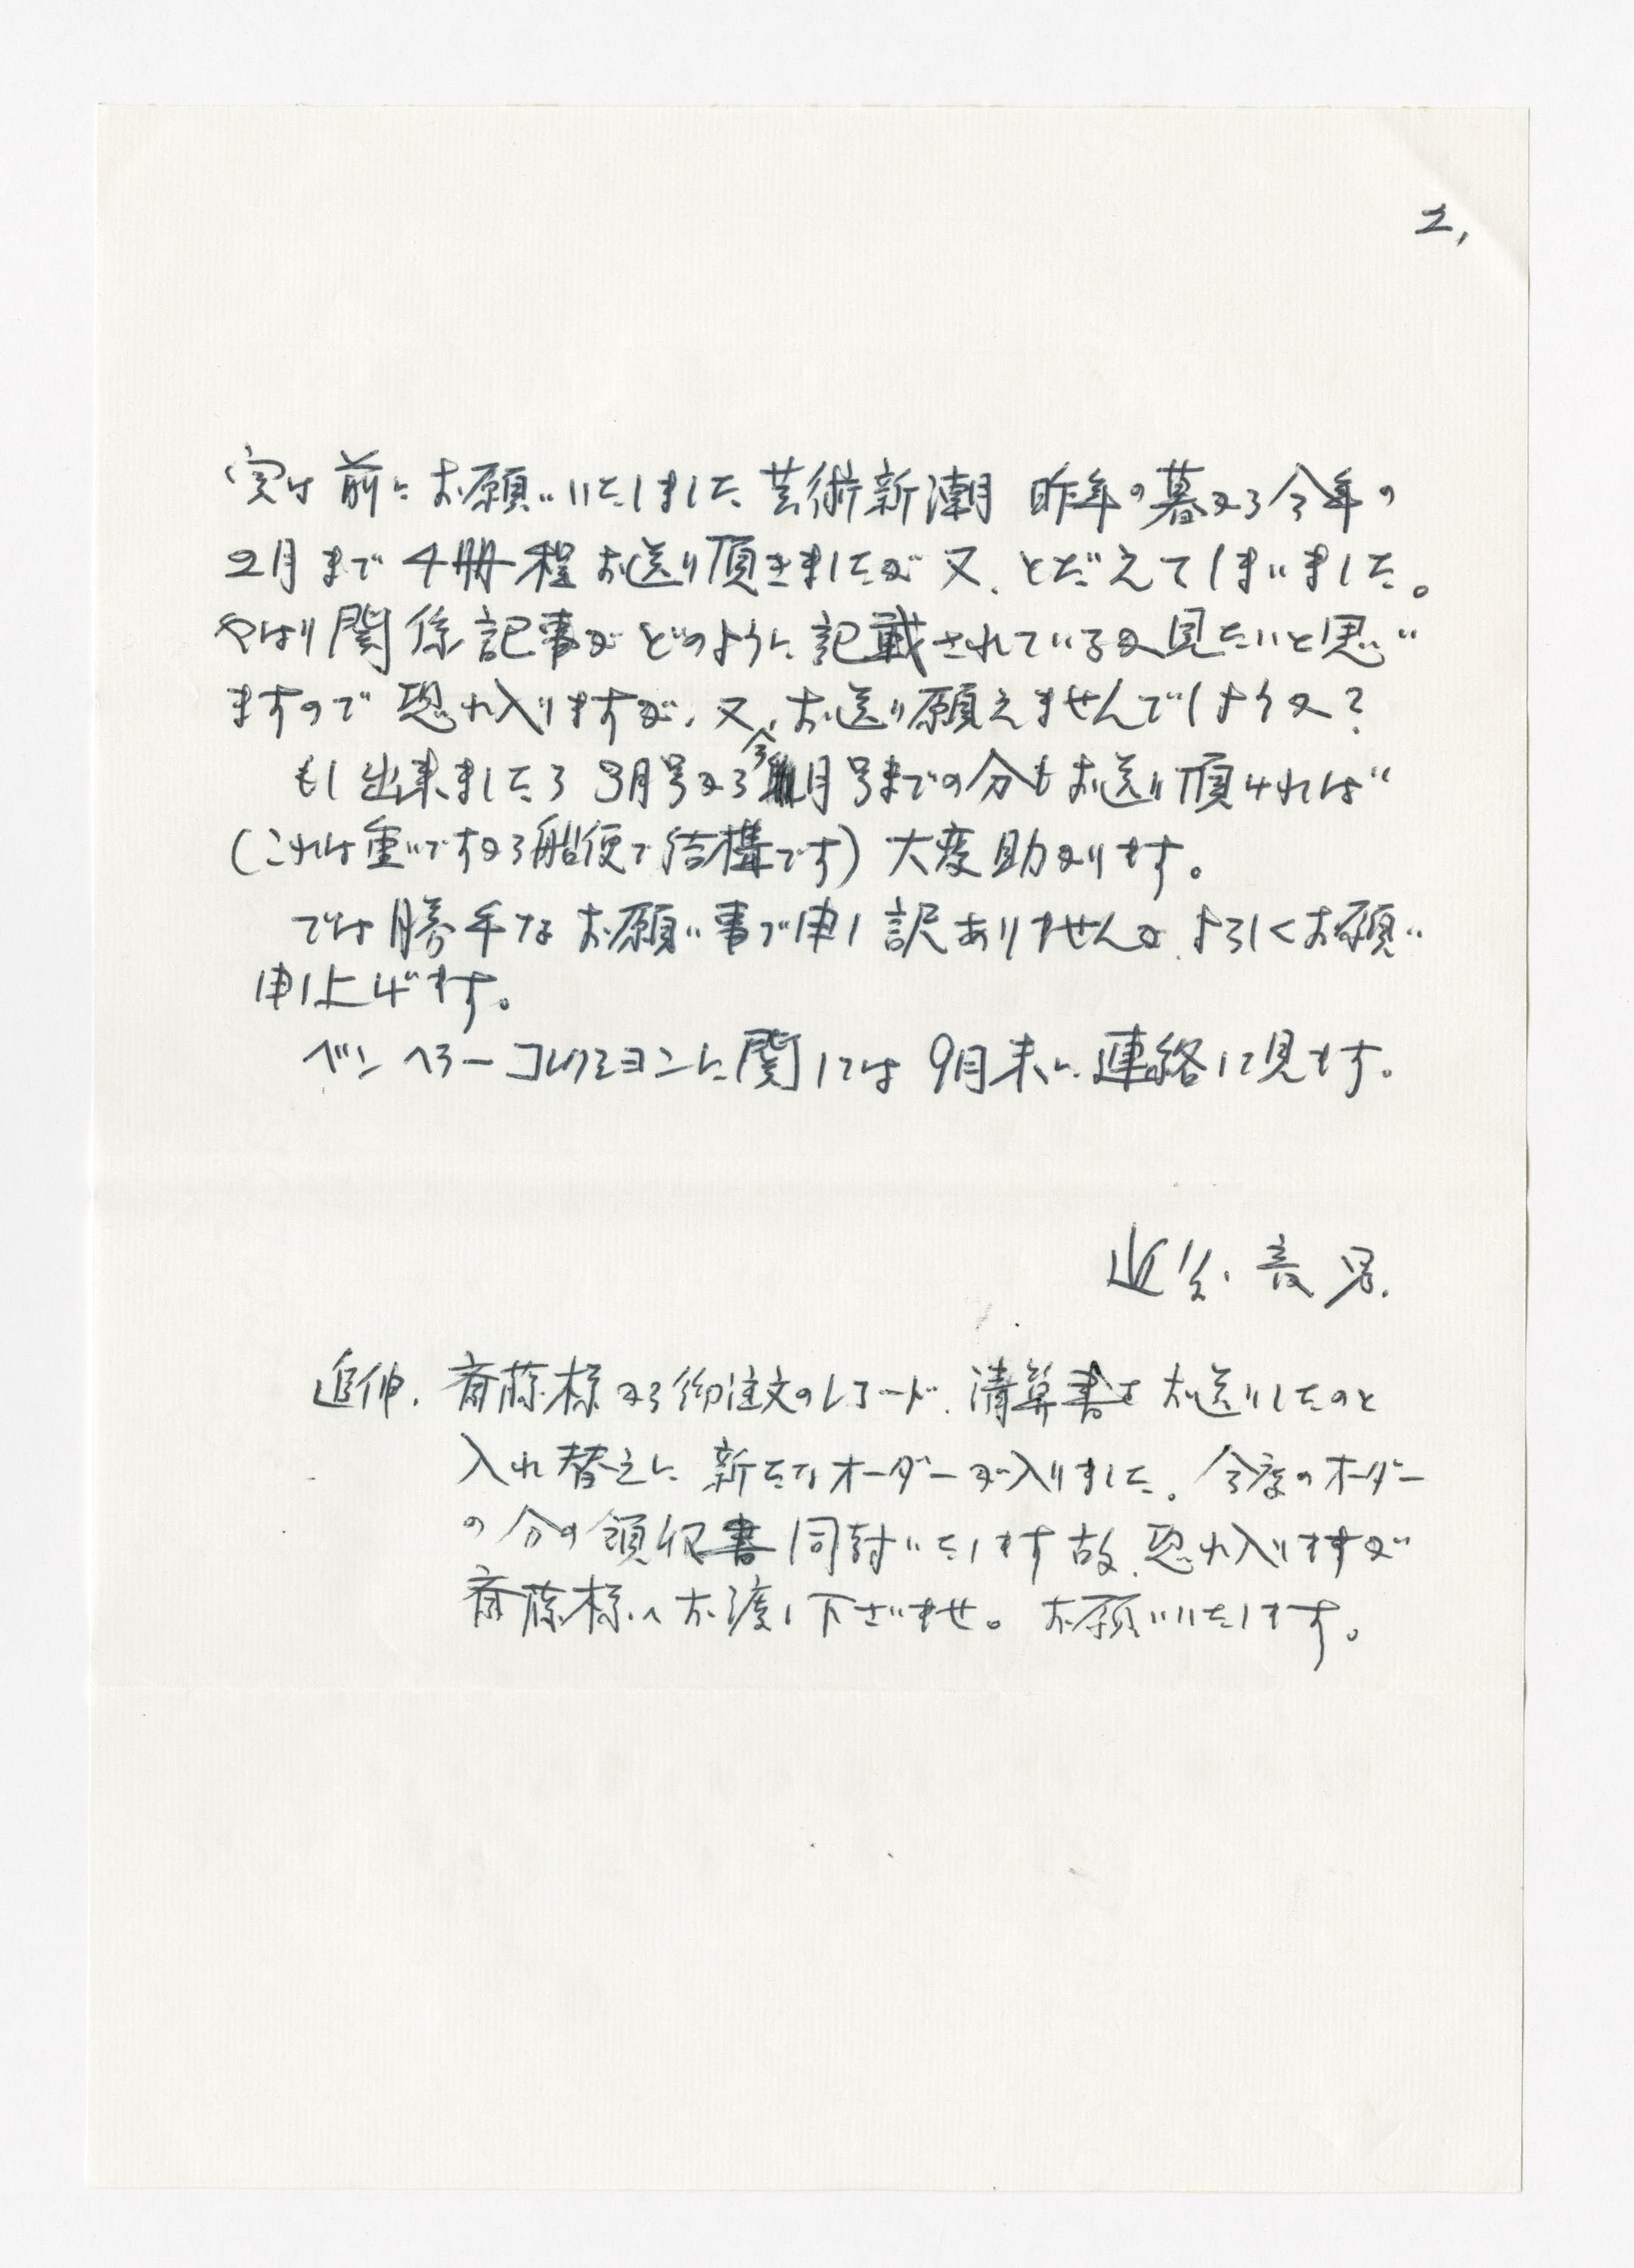 2,
実は前にお願いいたしました芸術新潮 昨年の暮から今年の
2月まで4冊程お送り頂きましたが又、とだえてしまいました。
やはり関係記事がどのように記載されているか見たいと思い
ますので恐れ入りますが、又、お送り願えませんでしょうか?
もし出来ましたら3月号から今月号までの分もお送り頂ければ
(これは重いですから船便で結構です)大変助かります。
では勝手なお願い事で申し訳ありませんが、よろしくお願い
申し上げます。
ベンヘラーコレクションに関しては9月末に連絡して見ます。
近藤 男.
追伸. 斉藤様から御注文のレコード、清算書をお送りしたのと
入れ替えに新たなオーダーが入りました。今度のオーダー
の分の領収書同封いたします故、恐れ入りますが
斉藤様へお渡し下さいませ。お願いいたします。